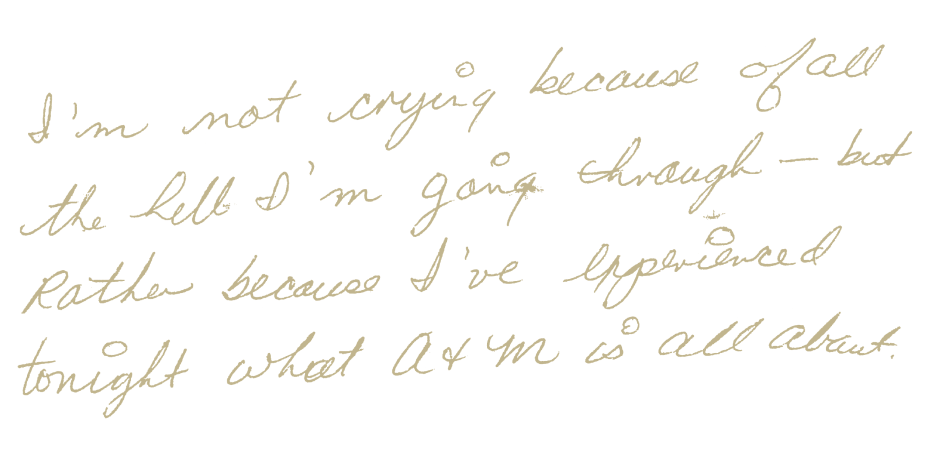 I'm not crying because of all
the hell I'm going through – but
Rather because I've experienced
tonight what A & M is all about.